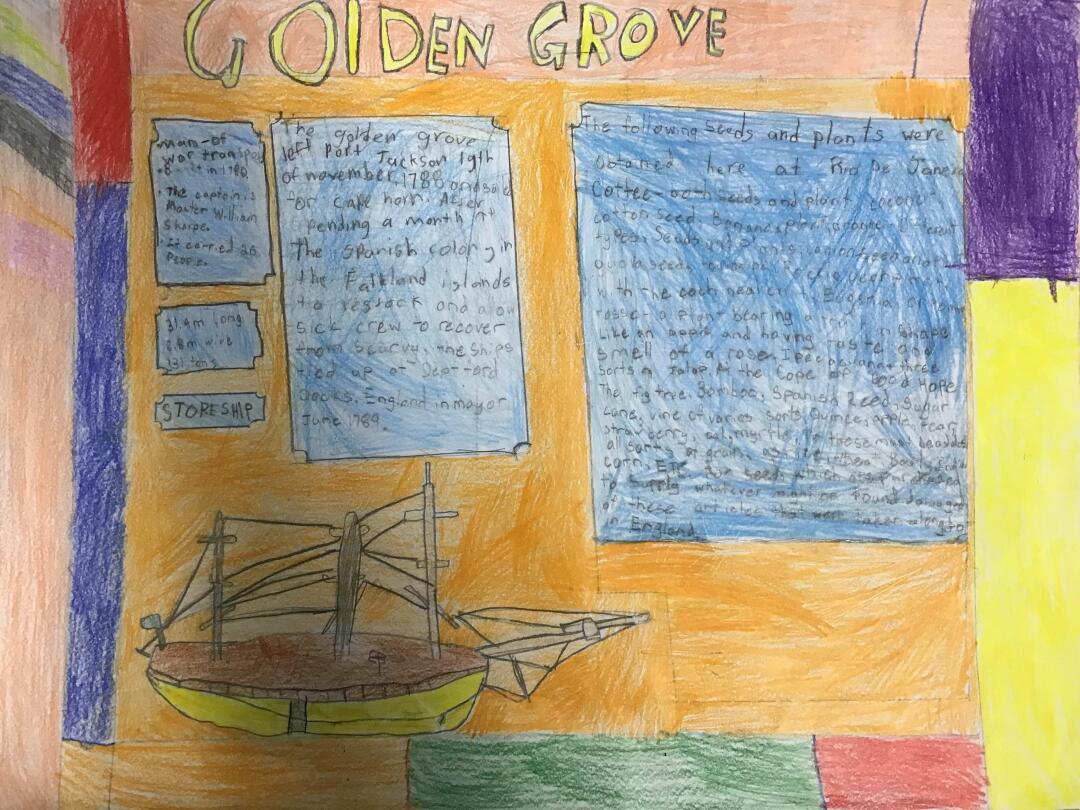 GOlDEN GROVE
man-of
war transpo
in 1788
• The captain is
Master William
Sharpe.
• It carried 26
People.
31.4m long
8.8m wide
331 tons
STORESHIP
The golden grove
left Port Jackson 19th
of november, 1788 and
for cape horn. After
spending a month at
The Spanish colony in
the Falkland islands
to restock and allow
sick crew to recover
from scurvy, the ships
tied up at Deptford
Docks, England in may or
June 1789.
The following seeds and plants were
obtained here at Rio De Janero
Coffee-both seeds and plant, cocoa
cotton seed, Banana plant, orange, different
types, seeds and
guava seeds
with the
rosse-a plant bearing a fruit in shape
Like an apple and having taste and
smell of a rose. Ipecacuanna three
sorts of Jalap. At the Cape of Good Hope
The fig tree, Bamboo, Spanish Reed, Sugar
cane, vine of varies sorts, Quince, apple, Pear
strawberry, oak, myrtle. To these must be added
all sorts of grain, as
corn, Etc for seed which
to supply whatever might be found damaged
of these articles that were taken along to
in England